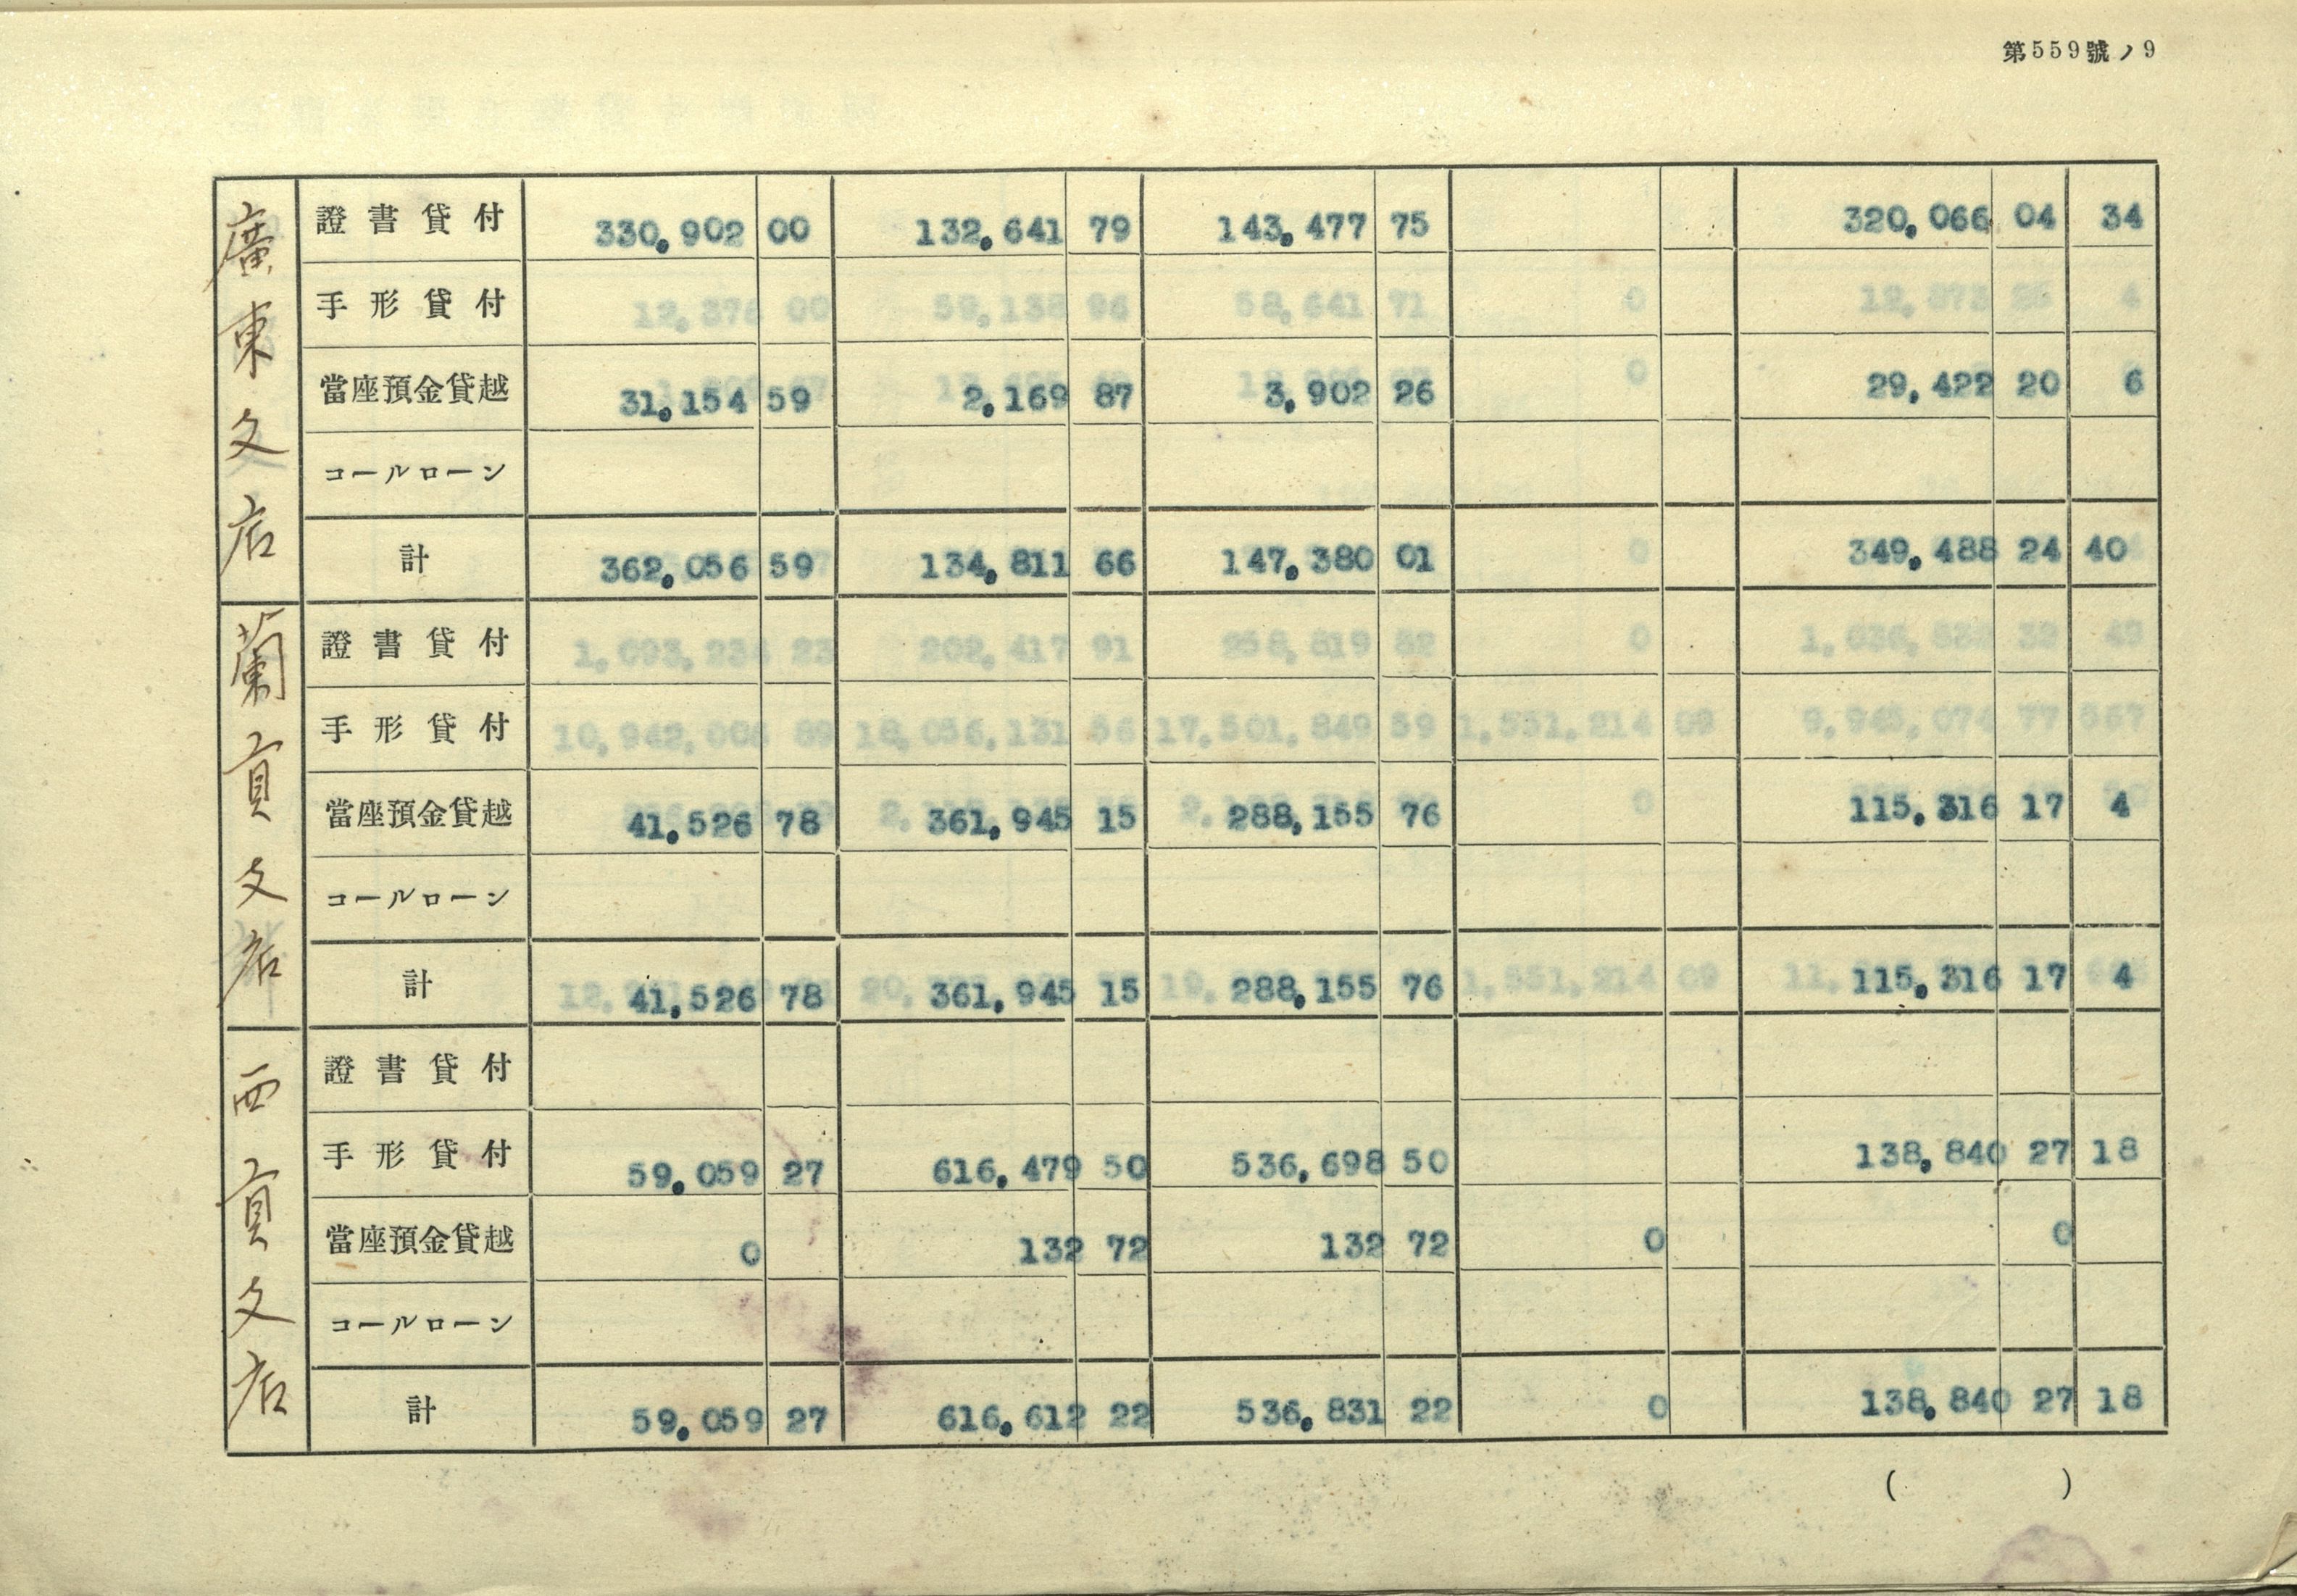 第559號ノ9
廣東支店
證書貸付 330,902 00 132,641 79 143,477 75 320,066 04 34
手形貸付
當座預金貸越 31,154 59 2,169 87 3,902 26 29,422 20 6
コールローン
計 362,056 59 134,811 66 147,380 01 349,488 24 40
蘭貢支店
證書貸付
手形貸付
當座預金貸越 41,526 78 361,945 15 288,155 76 115,316 17 4
コールローン
計 41,526 78 361,945 15 288,155 76 115,316 17 4
西貢支店
證書貸付
手形貸付 59,059 27 616,479 50 536,698 50 138,840 27 18
當座預金貸越 0 132 72 132 72 0 0
コールローン
計 59,059 27 616,612 22 536,831 22 0 138,840 27 18
( )